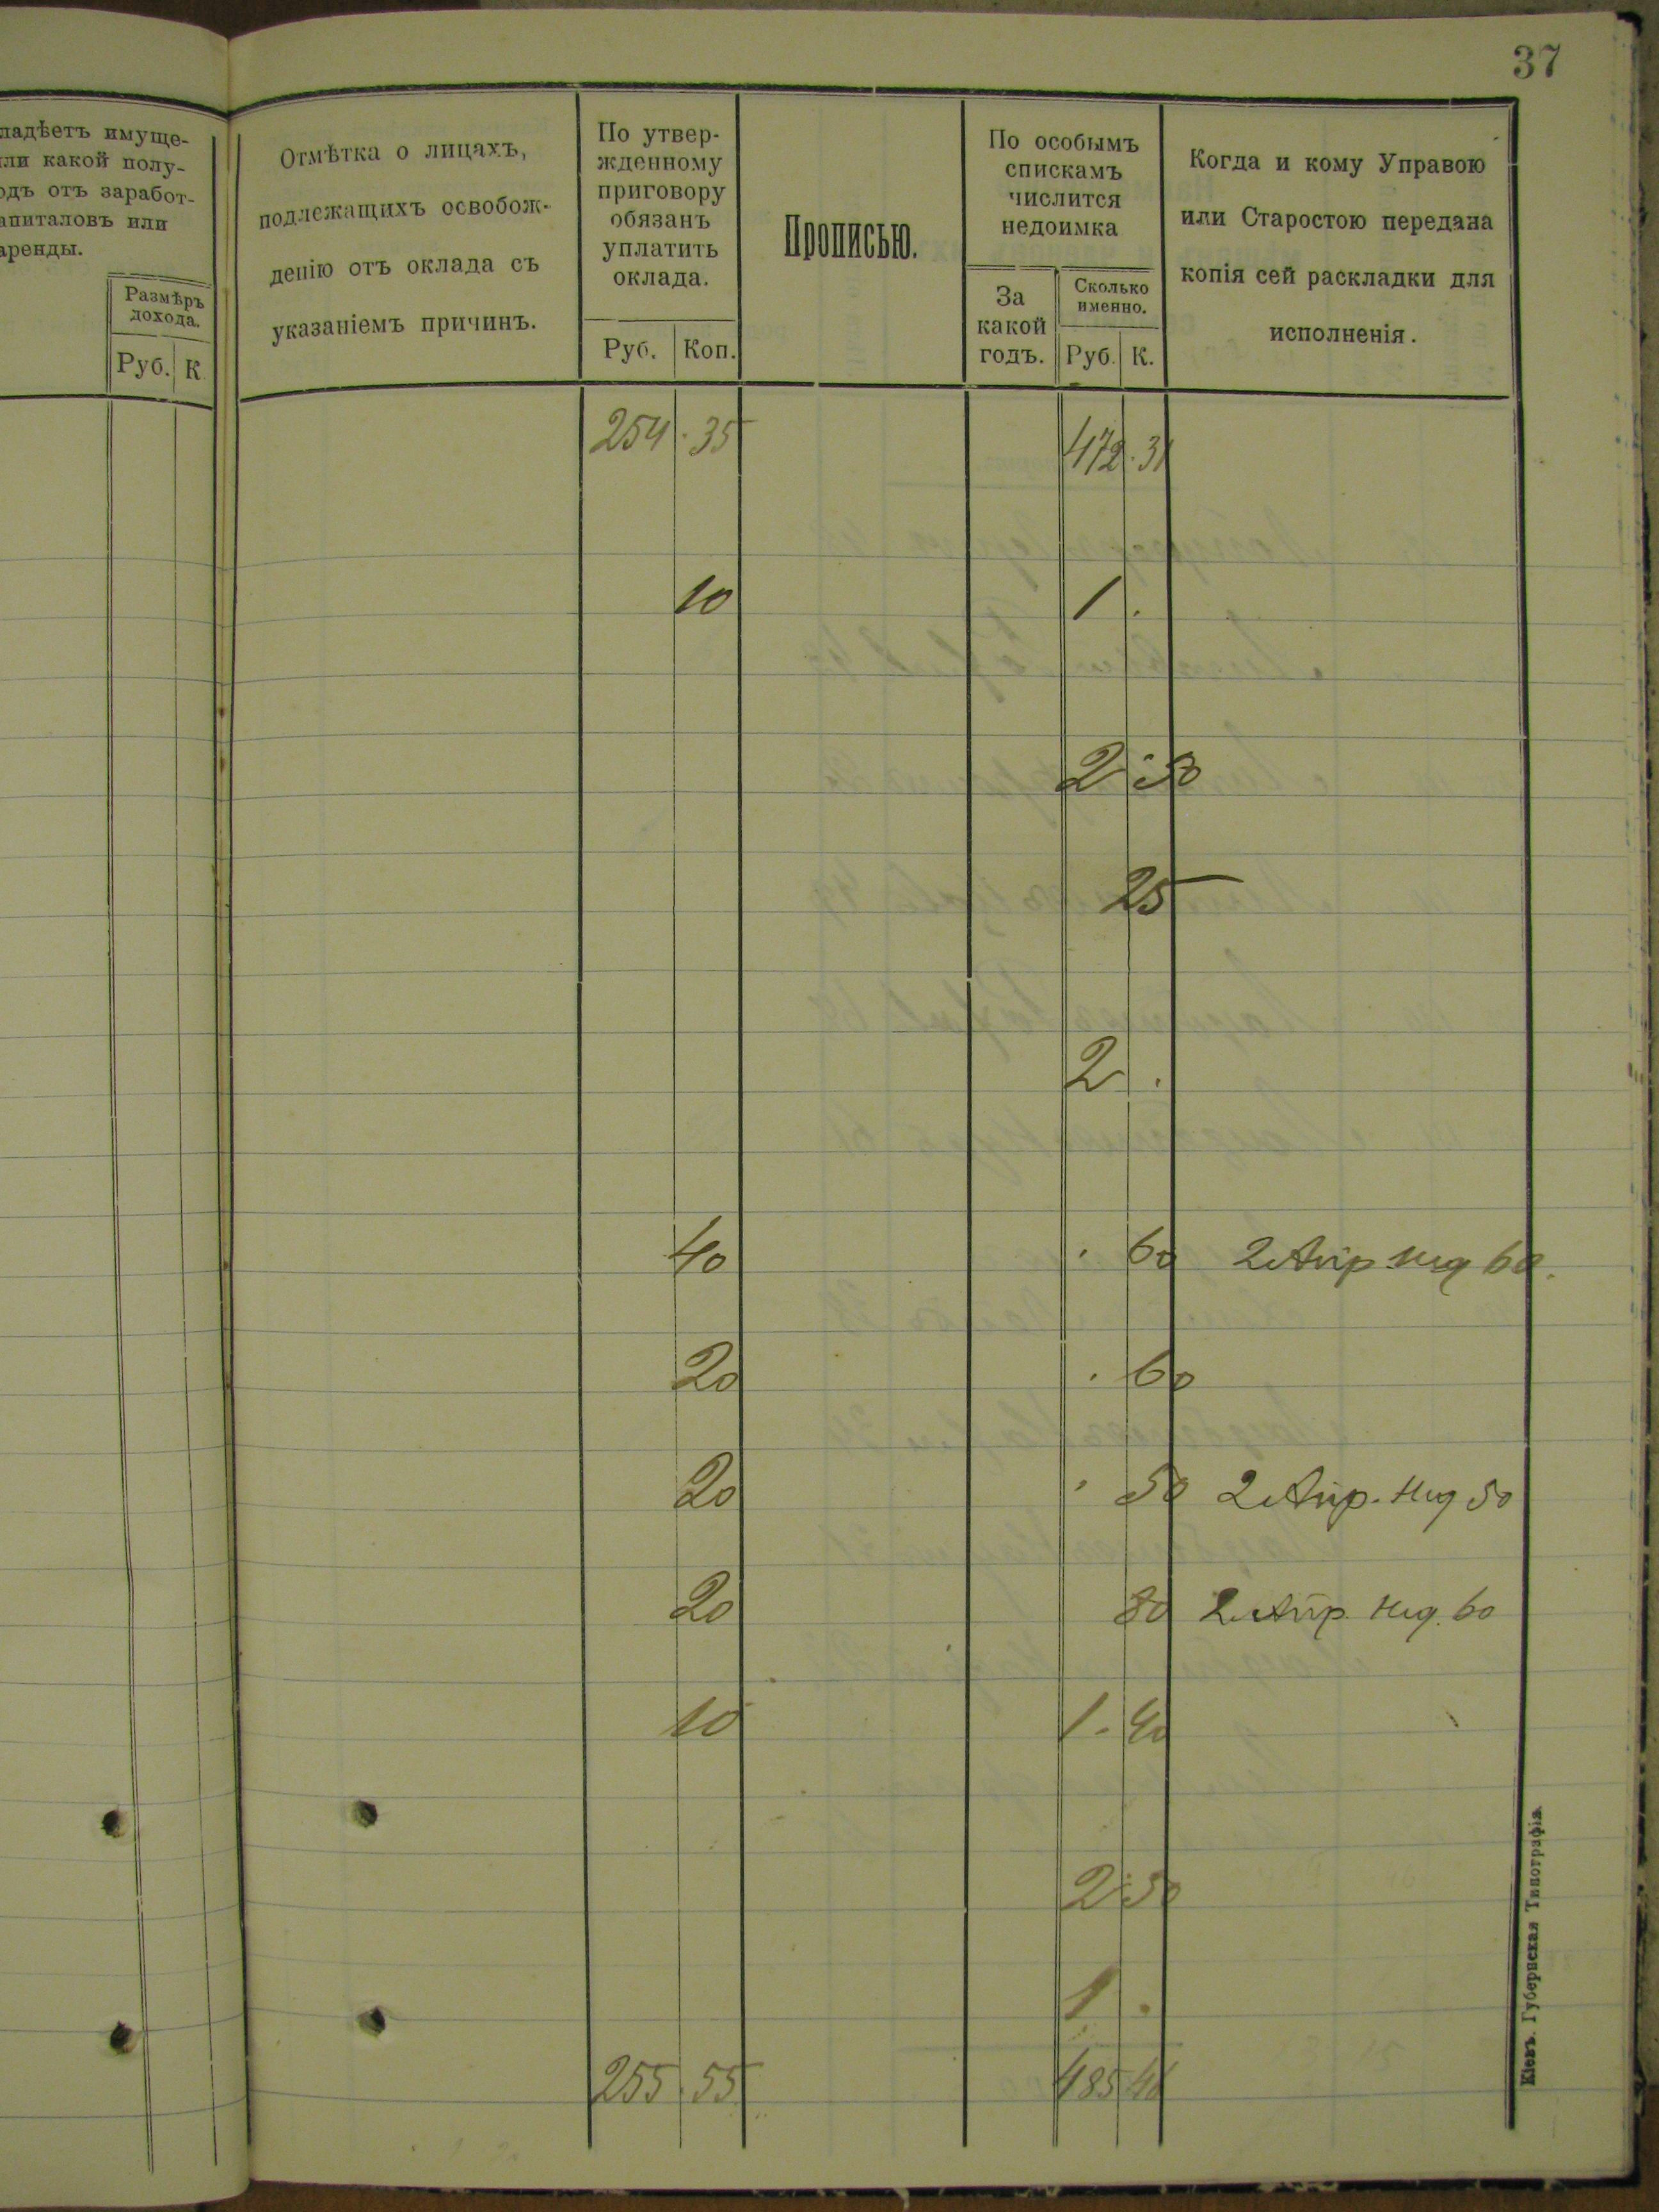 37
ладѣетъ имуще-
ли какой полу-
одъ отъ заработ-
апиталовъ или
аренды.
Размѣръ
дохода.
Руб. К
Отмѣтка о лицахъ,
подлежащихъ освобож-
денію отъ оклада съ
указаніемъ причинъ.
По утвер-
жденному
приговору
обязанъ
уплатить
оклада.
Руб. Коп.
Прописью.
По особымъ
спискамъ
числится
недоимка
За
какой
годъ.
Сколько
именно.
Руб. К.
Когда и кому Управою
или Старостою передана
копія сей раскладки для
исполненія.
254 . 35 472 . 31
10 1 .
2 . 50
25
2 .
40 . 60 2 Апр 60.
20 . 60
20 . 50 2 Апр. 50
20 80 2 Апр. 60
10 1 . 40
2 . 50
1 .
255 . 55 485 46
Кіевъ. Губернская Типографія.